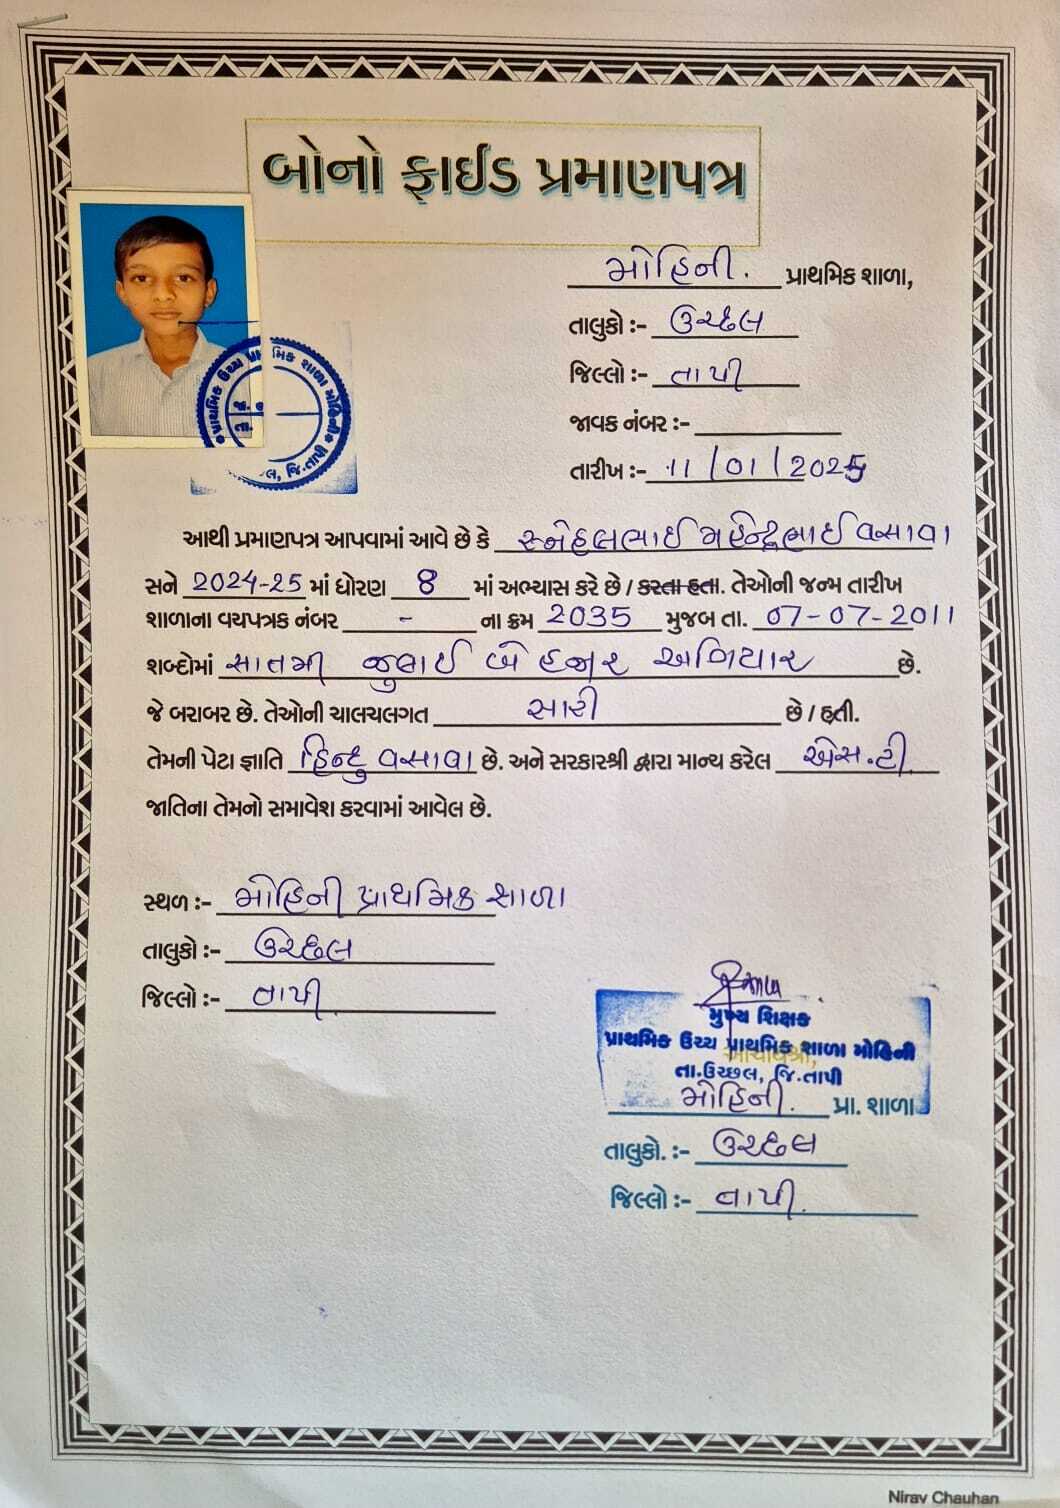 બોનો ફાઈડ પ્રમાણપત્ર
મોહિની. પ્રાથમિક શાળા,
તાલુકો :- ઉચ્છલ
જિલ્લો :- તાપી
જાવક નંબર :-
તારીખ :- 11/01/2025
પ્રાથમિક ઉચ્ચ પ્રાથમિક શાળા મોહિની
જિ.તાપી
આથી પ્રમાણપત્ર આપવામાં આવે છે કે સ્નેહલભાઈ મહેન્દ્રભાઈ વસાવા
સને 2024-25 માં ધોરણ 8 માં અભ્યાસ કરે છે / કરતા હતા. તેઓની જન્મ તારીખ
શાળાના વયપત્રક નંબર - ના ક્રમ 2035 મુજબ તા. 07-07-2011
શબ્દોમાં સાતમી જુલાઈ બે હજાર અગિયાર છે.
જે બરાબર છે. તેઓની ચાલચલગત સારી છે / હતી.
તેમની પેટા જ્ઞાતિ હિન્દુ વસાવા છે. અને સરકારશ્રી દ્વારા માન્ય કરેલ એસ.ટી
જાતિના તેમનો સમાવેશ કરવામાં આવેલ છે.
સ્થળ :- મોહિની પ્રાથમિક શાળા
તાલુકો :- ઉચ્છલ
જિલ્લો :- તાપી
મુખ્ય શિક્ષક
પ્રાથમિક ઉચ્ચ પ્રાથમિક શાળા મોહિની
આચાર્યશ્રી,
તા.ઉચ્છલ, જિ.તાપી
મોહિની. પ્રા. શાળા
તાલુકો. :- ઉચ્છલ
જિલ્લો :- તાપી.
Nirav Chauhan